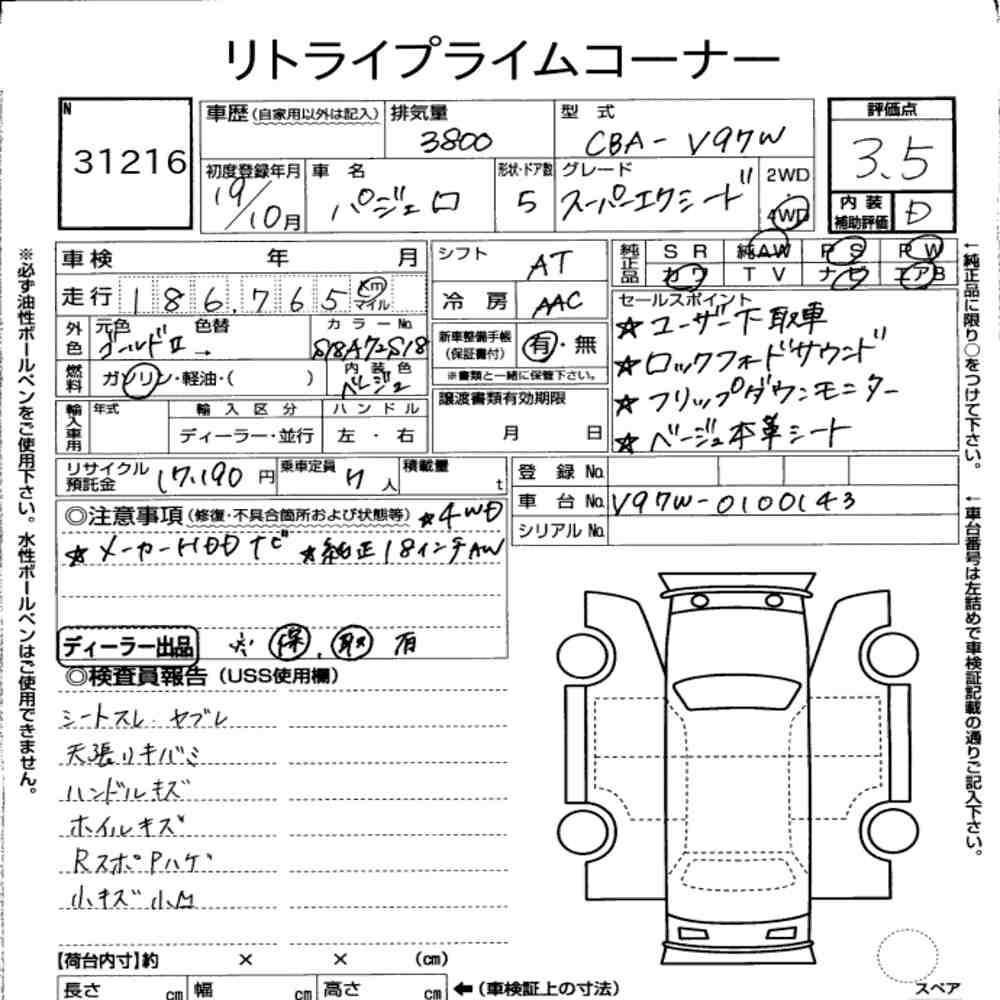 リトライプライムコーナー
N
31216
車歴（自家用以外は記入）
排気量
3800
型 式
CBA-V97W
評価点
3.5
初度登録年月
19/10月
車 名
パジェロ
形状・ドア数
5
グレード
スーパーエクシードII
2WD
4WD
内装補助評価
D
車検 年 月
走行 186,765 Km マイル
シフト
AT
冷 房
AAC
純正品
SR 純AW PS PW
カワ TV ナビ エアB
外色
元色 色替
ゴールドII →
カラーNo.
S18A72S18
新車整備手帳（保証書付）
有・無
※書類と一緒に保管下さい。
セールスポイント
☆ユーザー下取車
☆ロックフォードサウンド
☆フリップダウンモニター
☆ベージュ本革シート
燃料
ガソリン・軽油・（ ）
内装色
ベージュ
輸入車用
年式
輸入区分
ハンドル
ディーラー・並行
左・右
譲渡書類有効期限
月 日
リサイクル預託金
17,190 円
乗車定員
7 人
積載量
t
登録 No.
車台 No. V97W-0100143
シリアル No.
◎注意事項（修復・不具合箇所および状態等）☆4WD
☆メーカーHDDナビ ☆純正18インチAW
ディーラー出品
保 取 有
◎検査員報告（USS使用欄）
シートスレ・ヤブレ
天張リキバミ
ハンドルキズ
ホイルキズ
RスポPハゲ
小キズ小凹
【荷台内寸】約 × × （cm）
長さ cm 幅 cm 高さ cm
←（車検証上の寸法）
スペア
※必ず油性ボールペンをご使用下さい。水性ボールペンはご使用できません。
←純正品に限り○をつけて下さい。
←車台番号は左詰めで車検証記載の通りご記入下さい。